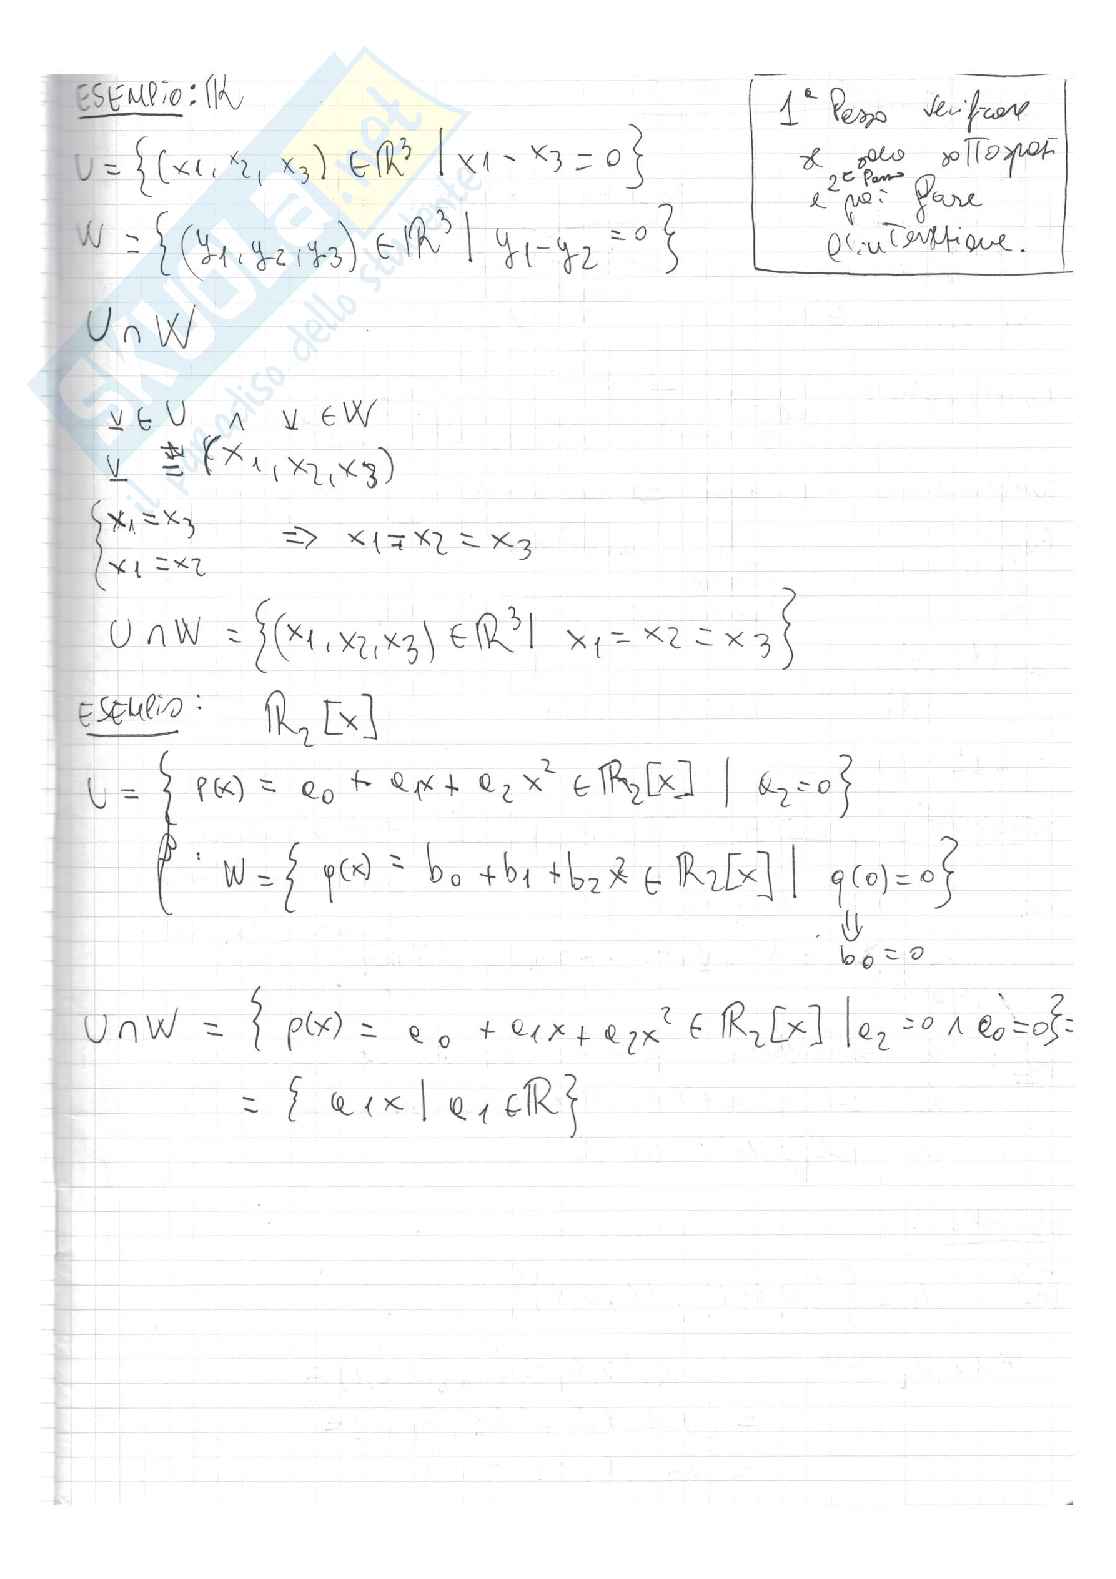 ESEMPIO: IK
U = {(x1, x2, x3) ∈ ℝ³ | x1 - x3 = 0}
W = {(y1, y2, y3) ∈ ℝ³ | y1 - y2 = 0}
1ª Passo verificare
se sono sottospazi
2ª Passo
e poi fare
l'intersezione.
U ∩ W
v ∈ U ∧ v ∈ W
v = (x1, x2, x3)
{ x1 = x3
x1 = x2
=> x1 = x2 = x3
U ∩ W = {(x1, x2, x3) ∈ ℝ³ | x1 = x2 = x3}
ESEMPIO: ℝ₂[x]
U = { p(x) = a0 + a1x + a2x² ∈ ℝ₂[x] | a2 = 0}
W = { q(x) = b0 + b1 + b2x² ∈ ℝ₂[x] | q(0) = 0}
⇓
b0 = 0
U ∩ W = { p(x) = a0 + a1x + a2x² ∈ ℝ₂[x] | a2 = 0 ∧ a0 = 0} =
= { a1x | a1 ∈ ℝ}
SKUOLA.net
il paradiso dello studente